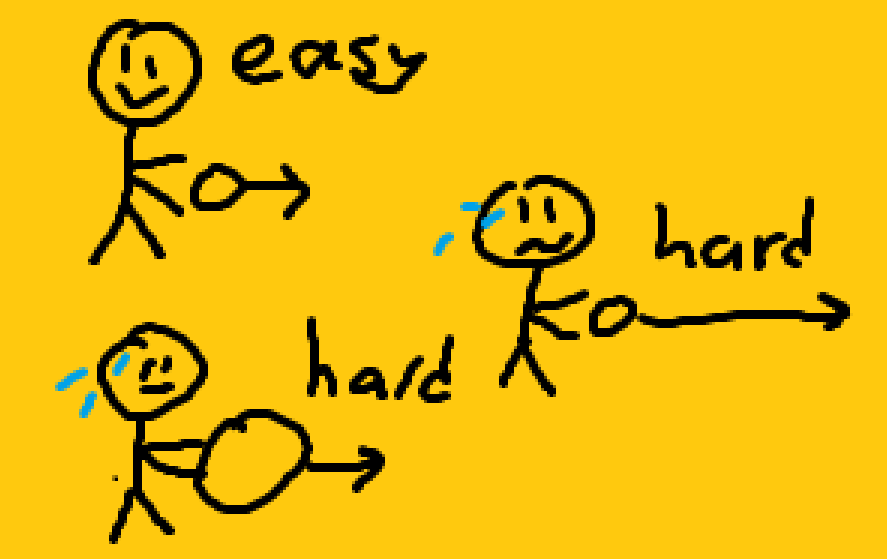 easy
hard
hard